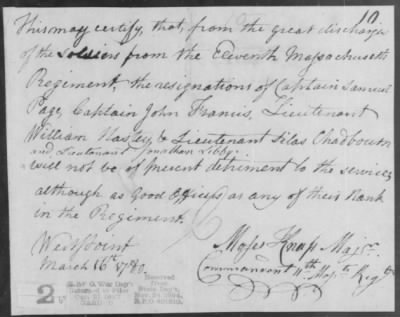 10
This may certify, that, from the great discharge
of the Soldiers from the Eleventh Massachusetts
Regiment, the resignations of Captain Samuel
Page, Captain John Francis, Lieutenant
William Hasley, & Lieutenant Silas Chadbourn
and Lieutenant Jonathan Libby
will not be of present detriment to the service,
although as good Officers as any of their Rank
in the Regiment.
Westpoint
March 16th 1780.
Moses Knap Majr.
Commandant 11th Massts Regt
2
R & P O. War Dep't
Received from
State Dep't,